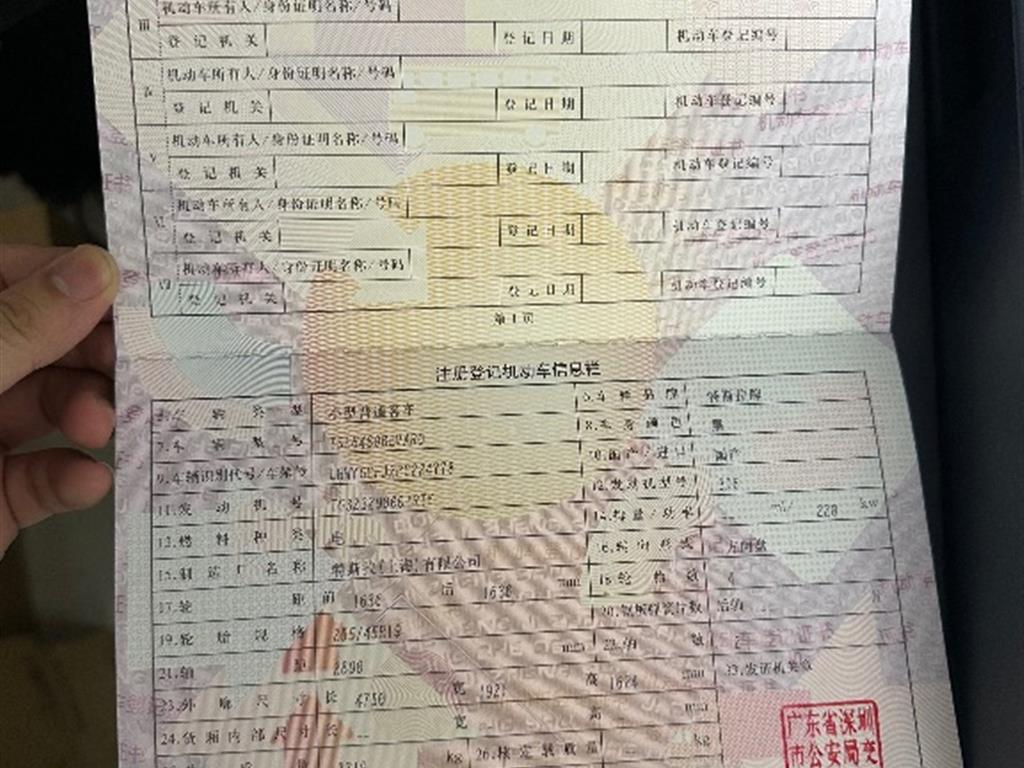 III 机动车所有人/身份证明名称/号码
登记机关 登记日期 机动车登记编号
机动车所有人/身份证明名称/号码
登记机关 登记日期 机动车登记编号
V 机动车所有人/身份证明名称/号码
登记机关 登记日期 机动车登记编号
机动车所有人/身份证明名称/号码
登记机关 登记日期 机动车登记编号
机动车所有人/身份证明名称/号码
登记机关 登记日期 机动车登记编号
第1页
注册登记机动车信息栏
车辆类型 小型普通客车 6.车辆品牌 特斯拉牌
7.车辆型号 8.车身颜色 黑
9.车辆识别代号/车架号 10.国产/进口 国产
11.发动机号 12.发动机型号
13.燃料种类 电 14.排量/功率 ml/ 220 kw
15.制造厂名称 特斯拉(上海)有限公司 16.转向形式 方向盘
17.轮距 前 1636 后 1636 mm 18.轮胎数 4
19.轮胎规格 20.钢板弹簧片数 后轴
21.轴距 2890 mm 22.轴数 2
23.外廓尺寸 长 4750 宽 1921 高 1624 mm 33.发证机关章
24.货厢内部尺寸 长 宽 高 mm
kg 26.核定载质量 kg
广东省深圳
市公安局交